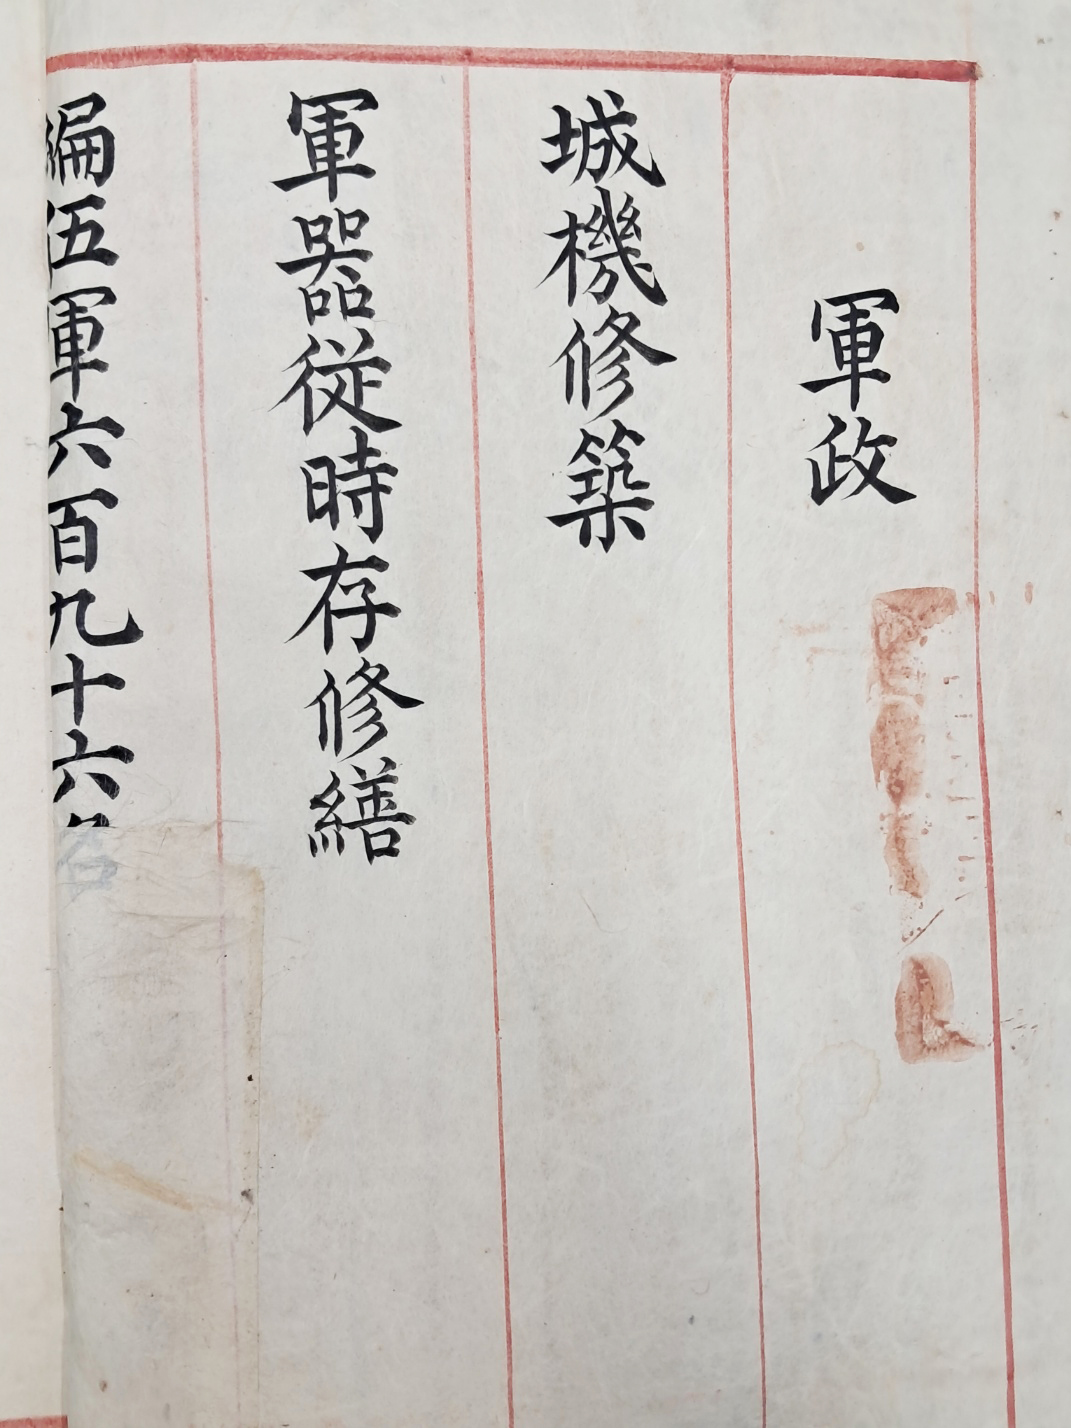 軍政
城機修築
軍器従時存修繕
編伍軍六百九十六名